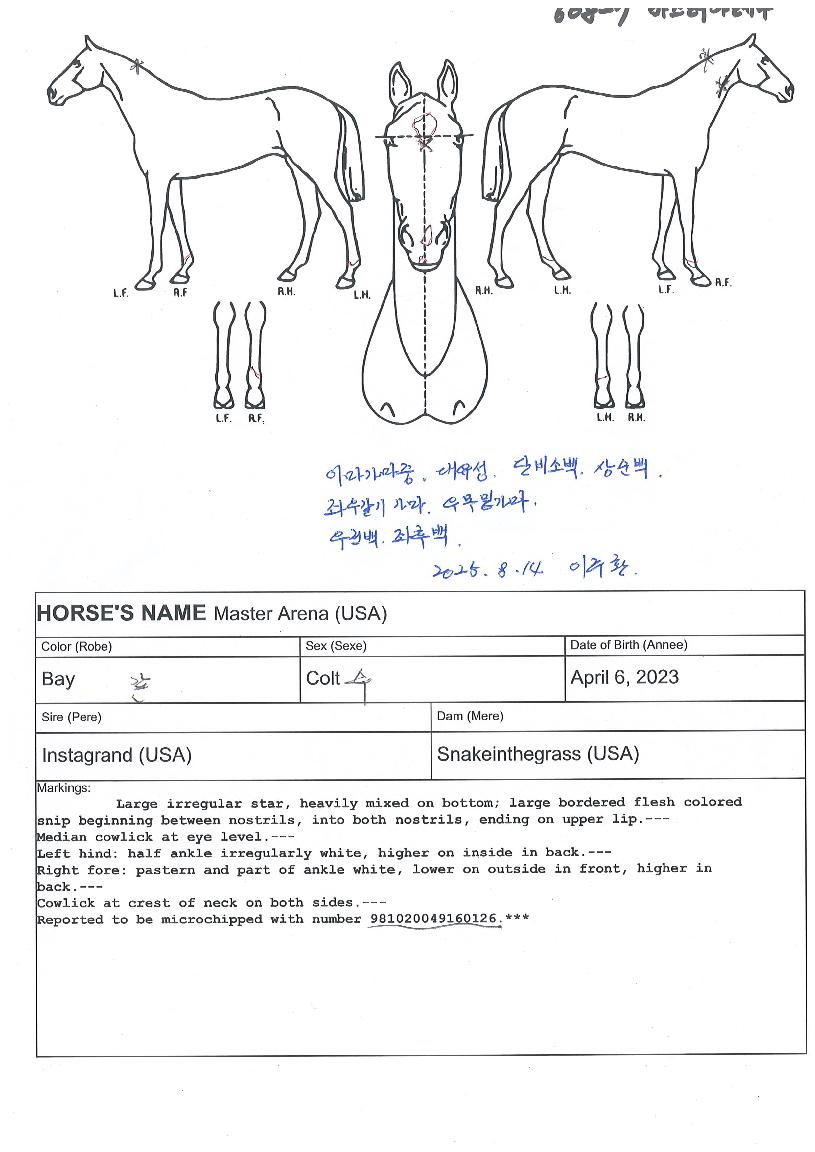 L.F.
R.F
R.H.
L.H.
R.H.
L.H.
L.F.
R.F.
L.F.
R.F.
L.H.
R.H.
이마가마중. 대유성. 단비소백. 상순백.
좌우갈기가마. 우목밑가마.
우전백. 좌후백.
2025. 8. 14 이주환.
HORSE'S NAME Master Arena (USA)
Color (Robe) Sex (Sexe) Date of Birth (Annee)
Bay 갈 Colt 수 April 6, 2023
Sire (Pere) Dam (Mere)
Instagrand (USA) Snakeinthegrass (USA)
Markings:
Large irregular star, heavily mixed on bottom; large bordered flesh colored
snip beginning between nostrils, into both nostrils, ending on upper lip.---
Median cowlick at eye level.---
Left hind: half ankle irregularly white, higher on inside in back.---
Right fore: pastern and part of ankle white, lower on outside in front, higher in
back.---
Cowlick at crest of neck on both sides.---
Reported to be microchipped with number 981020049160126.***